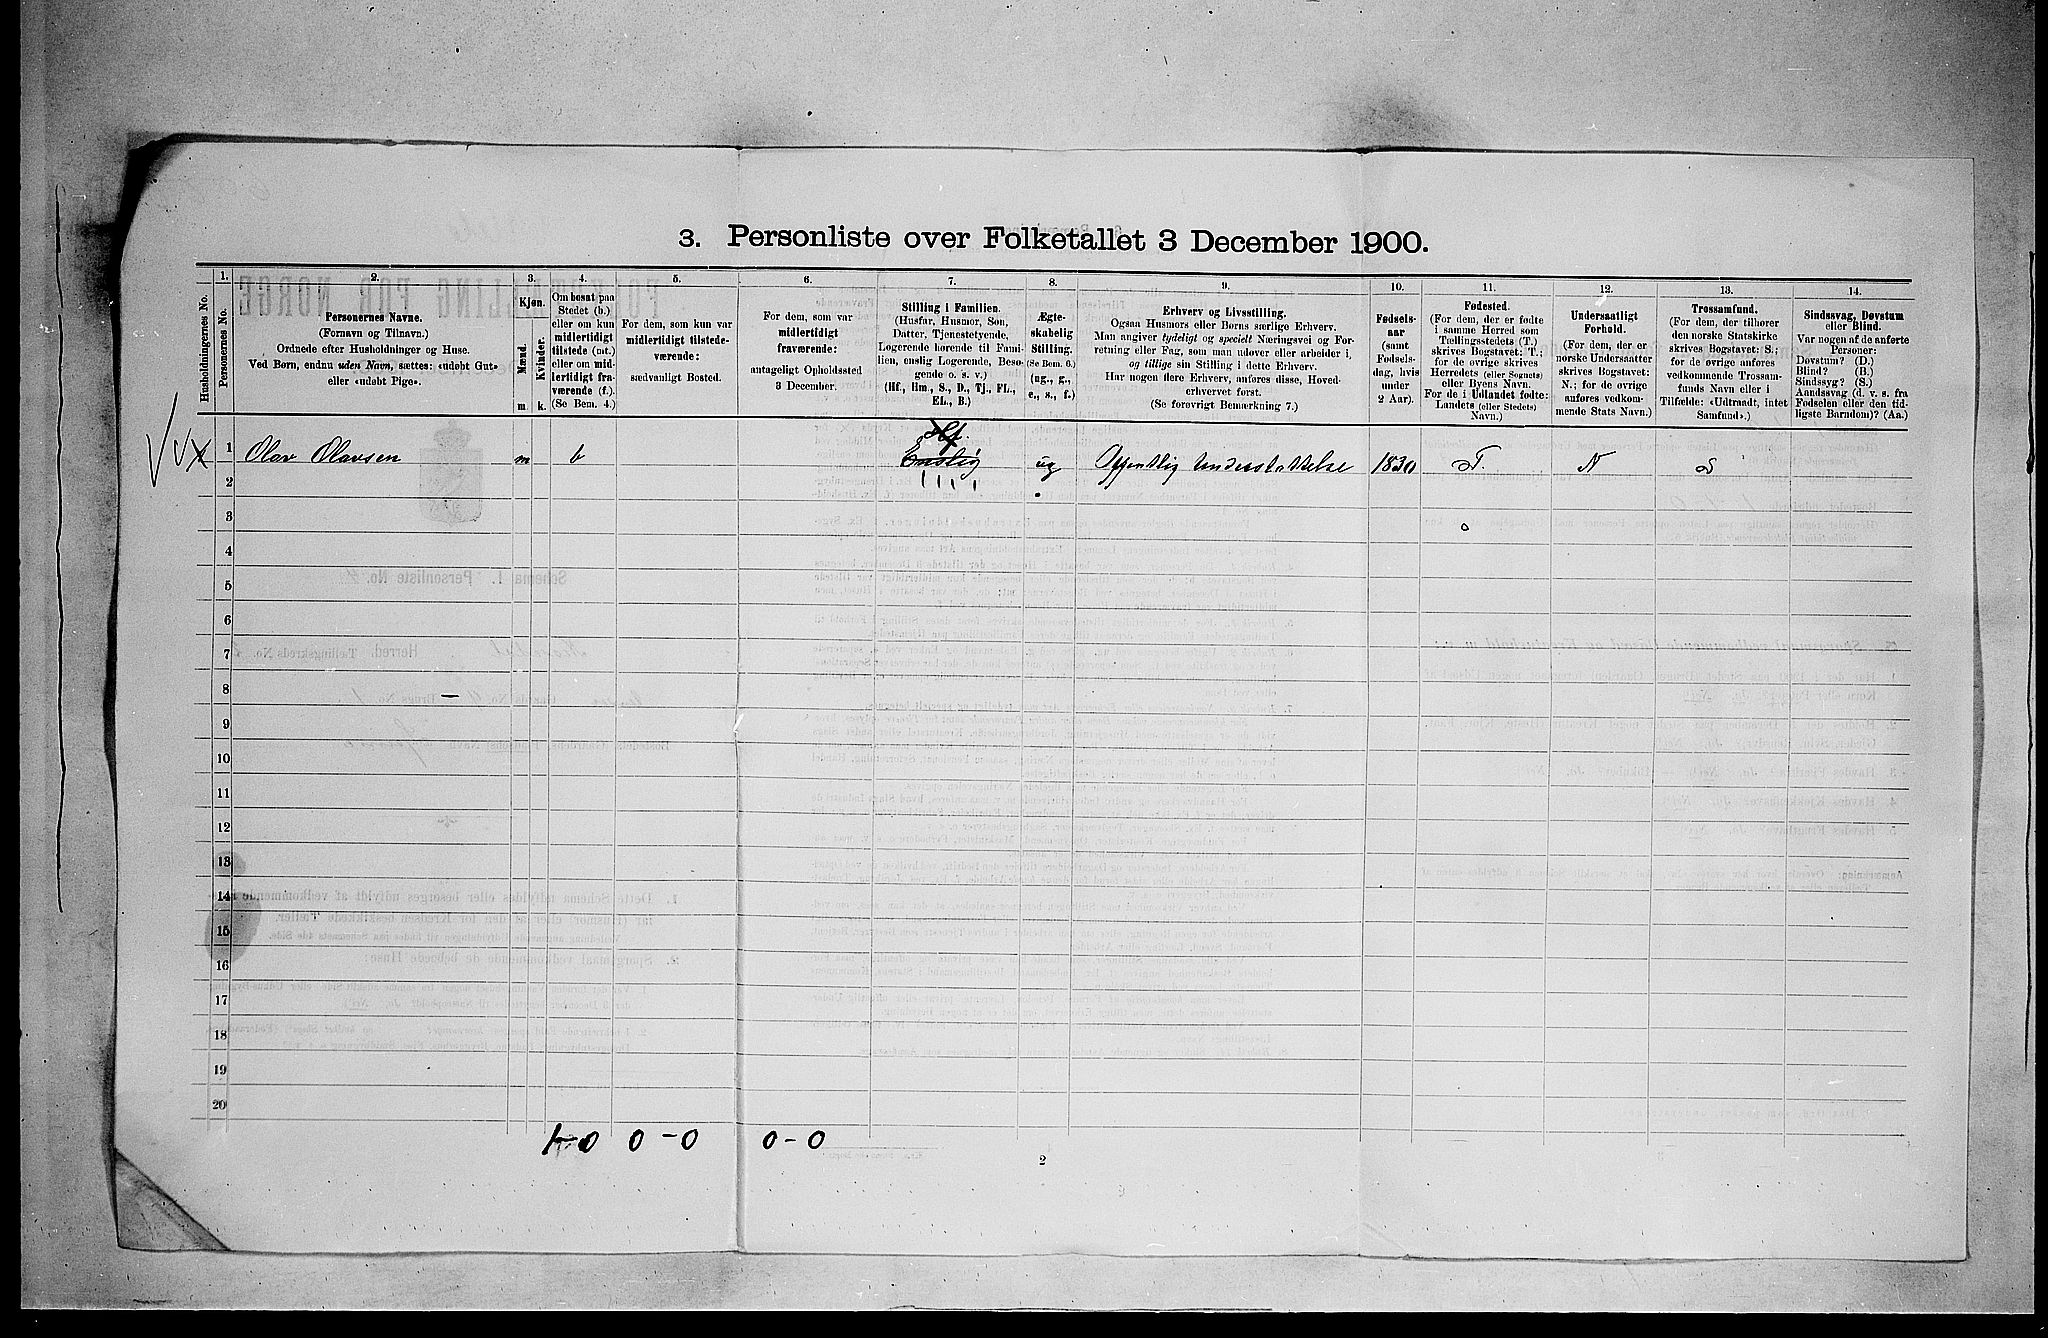 3. Personliste over Folketallet 3 December 1900.
Husholdningernes No.
1.
Personernes No.
2.
Personernes Navne.
(Fornavn og Tilnavn.)
Ordnede efter Husholdninger og Huse.
Ved Børn, endnu uden Navn, sættes: «udøbt Gut»
eller «udøbt Pige».
3.
Kjøn.
Mænd.
Kvinder.
m.
k.
4.
Om bosat paa
Stedet (b.)
eller om kun
midlertidigt
tilstede (mt.)
eller om mid-
lertidigt fra-
værende (f.).
(Se Bem. 4.)
5.
For dem, som kun var
midlertidigt tilstede-
værende:
sædvanligt Bosted.
6.
For dem, som var
midlertidigt
fraværende:
antageligt Opholdssted
3 December.
7.
Stilling i Familien.
(Husfar, Husmor, Søn,
Datter, Tjenestetyende,
Logerende hørende til Fami-
lien, enslig Logerende, Besø-
gende o. s. v.)
(Hf., Hm., S., D., Tj., FL.,
EL., B.)
8.
Ægte-
skabelig
Stilling.
(Se Bem. 6.)
(ug., g.,
e., s., f.)
9.
Erhverv og Livsstilling.
Ogsaa Husmors eller Børns særlige Erhverv.
Man angiver tydeligt og specielt Næringsvei og For-
retning eller Fag, som man udøver eller arbeider i,
og tillige sin Stilling i dette Erhverv.
Har nogen flere Erhverv, anføres disse, Hoved-
erhvervet først.
(Se forøvrigt Bemærkning 7.)
10.
Fødsels-
aar
(samt
Fødsels-
dag, hvis
under
2 Aar).
11.
Fødested.
(For dem, der er fødte
i samme Herred som
Tællingsstedets (T.)
skrives Bogstavet: T.;
for de øvrige skrives
Herredets (eller Sognets)
eller Byens Navn.
For de i Udlandet fødte:
Landets (eller Stedets)
Navn.)
12.
Undersaatligt
Forhold.
(For dem, der er
norske Undersaatter
skrives Bogstavet:
N.; for de øvrige
anføres vedkom-
mende Stats Navn.)
13.
Trossamfund.
(For dem, der tilhører
den norske Statskirke
skrives Bogstavet: S.;
for de øvrige anføres
vedkommende Trossam-
funds Navn eller i
Tilfælde: «Udtraadt, intet
Samfund».)
14.
Sindssvag, Døvstum
eller Blind.
Var nogen af de anførte
Personer:
Døvstum? (D.)
Blind? (B.)
Sindssyg? (S.)
Aandssvag (d. v. s. fra
Fødselen eller den tid-
ligste Barndom)? (Aa.)
Hf.
1 Olav Olavsen m b Enslig ug Offentlig Understøttelse 1830 T. N S
2
3
4
5
6
7
8
9
10
11
12
13
14
15
16
17
18
19
20
1-0 0-0 0-0
2